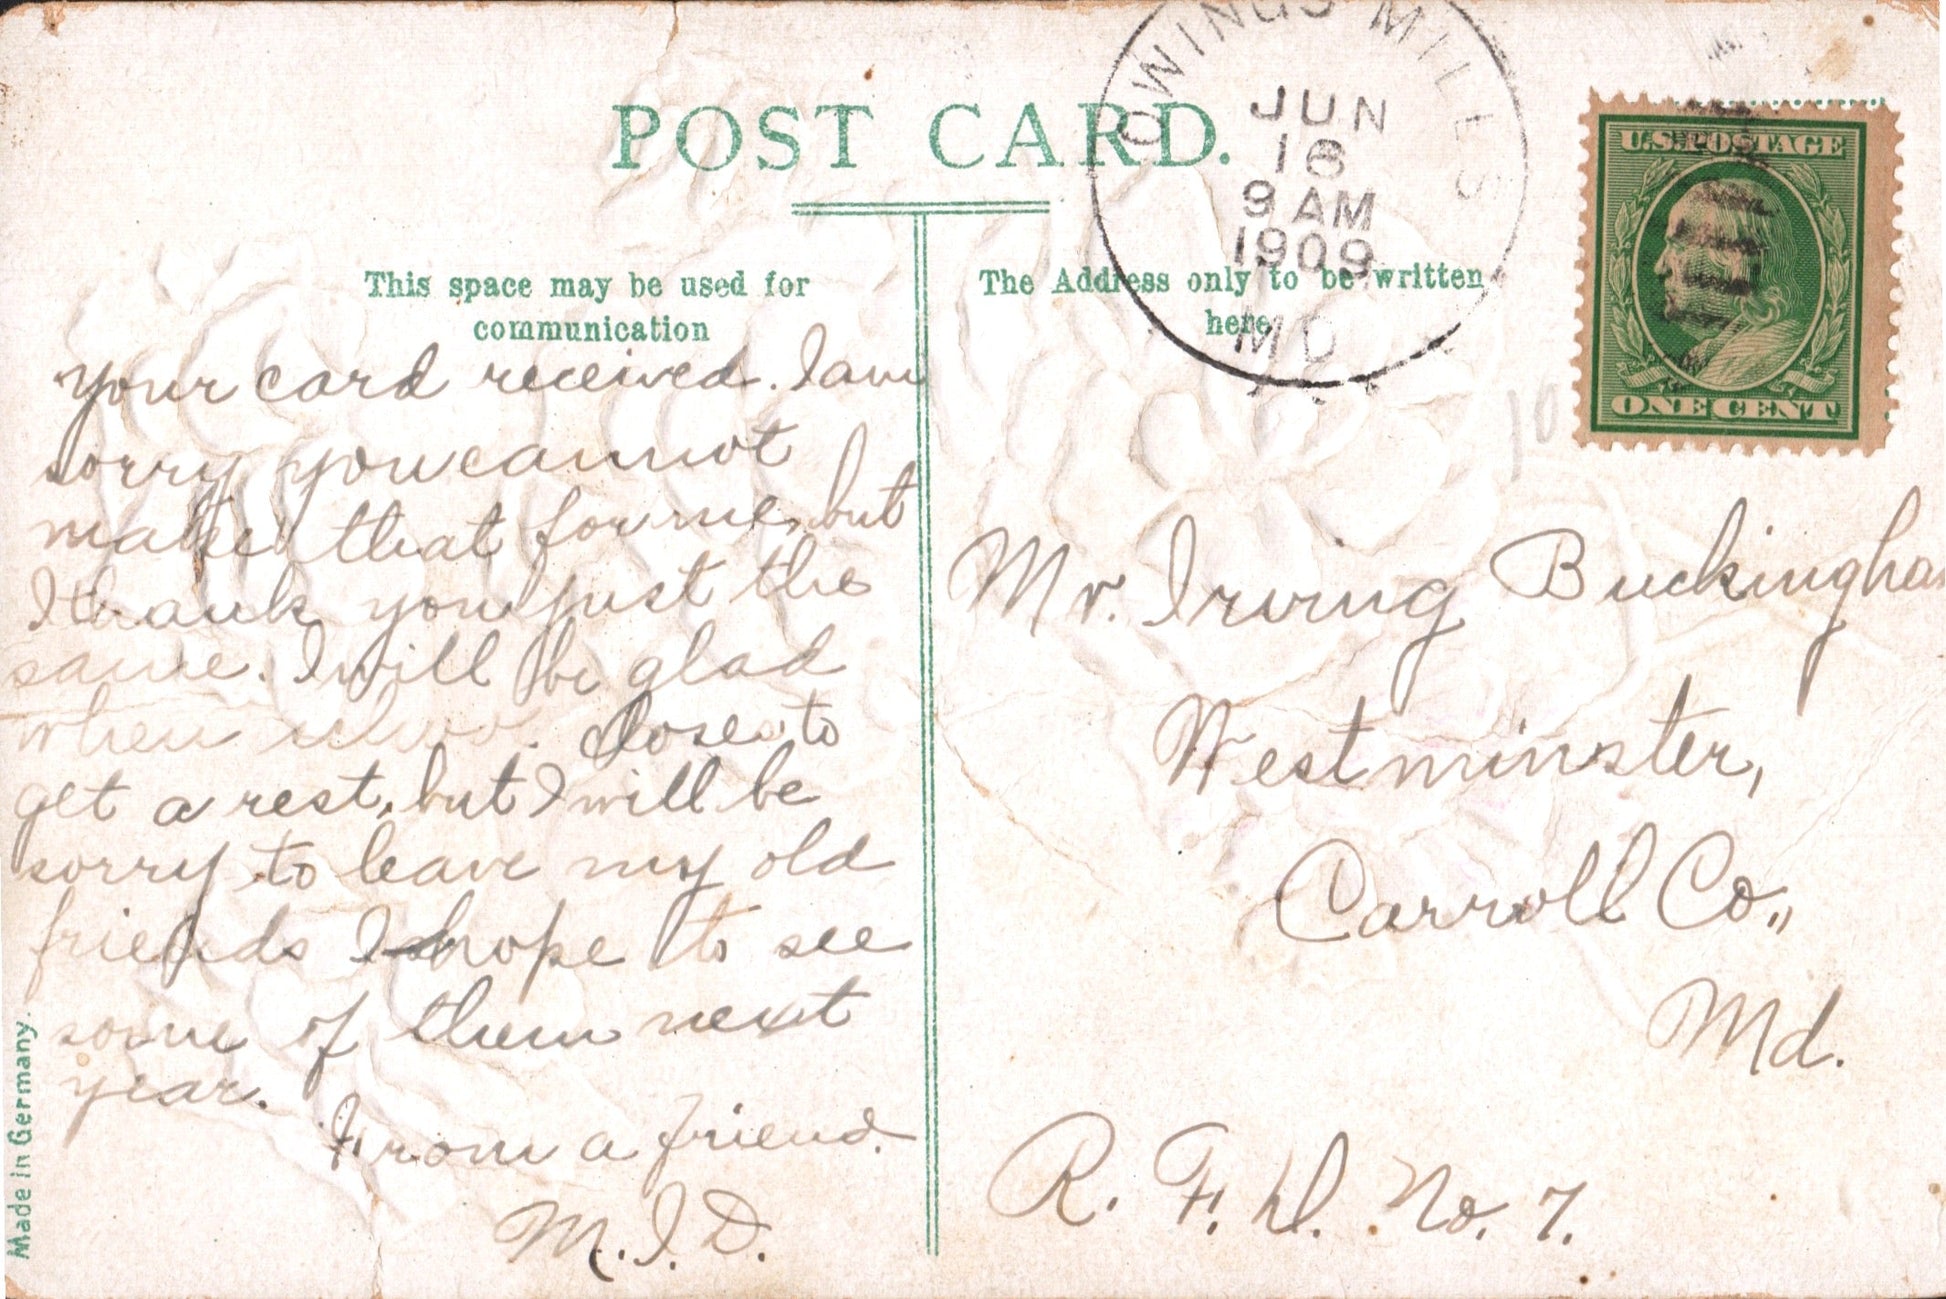 POST CARD.
OWINGS MILLS
JUN
16
9 AM
1909
MD
U.S. POSTAGE
ONE CENT
This space may be used for
communication
The Address only to be written
here
your card received. I am
sorry you cannot
make that for me, but
I thank you just the
same. I will be glad
when closes to
get a rest, but I will be
sorry to leave my old
friends I hope to see
some of them next
year.
From a friend.
M. I. D.
10
Mr. Irving Buckingham
Westminster,
Carroll Co.,
Md.
R. F. D. No. 7.
Made in Germany.